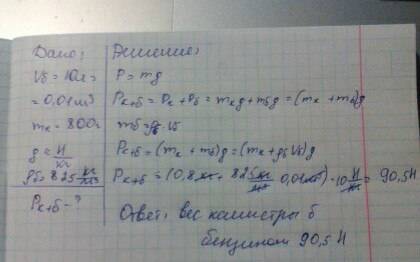 Дано:
Vб = 10л =
= 0,01м³
mк = 800г
g = Н/кг
ρб = 825 кг/м³
Pк+б - ?
Решение:
P = mg
Pк+б = Pк + Pб = mкg + mбg = (mк + mб)g
mб = ρб Vб
Pк+б = (mк + mб)g = (mк + ρб Vб)g
Pк+б = (0,8кг + 825 кг/м³ 0,01м³) · 10 Н/кг = 90,5Н
Ответ: вес канистры б
бензином 90,5 Н